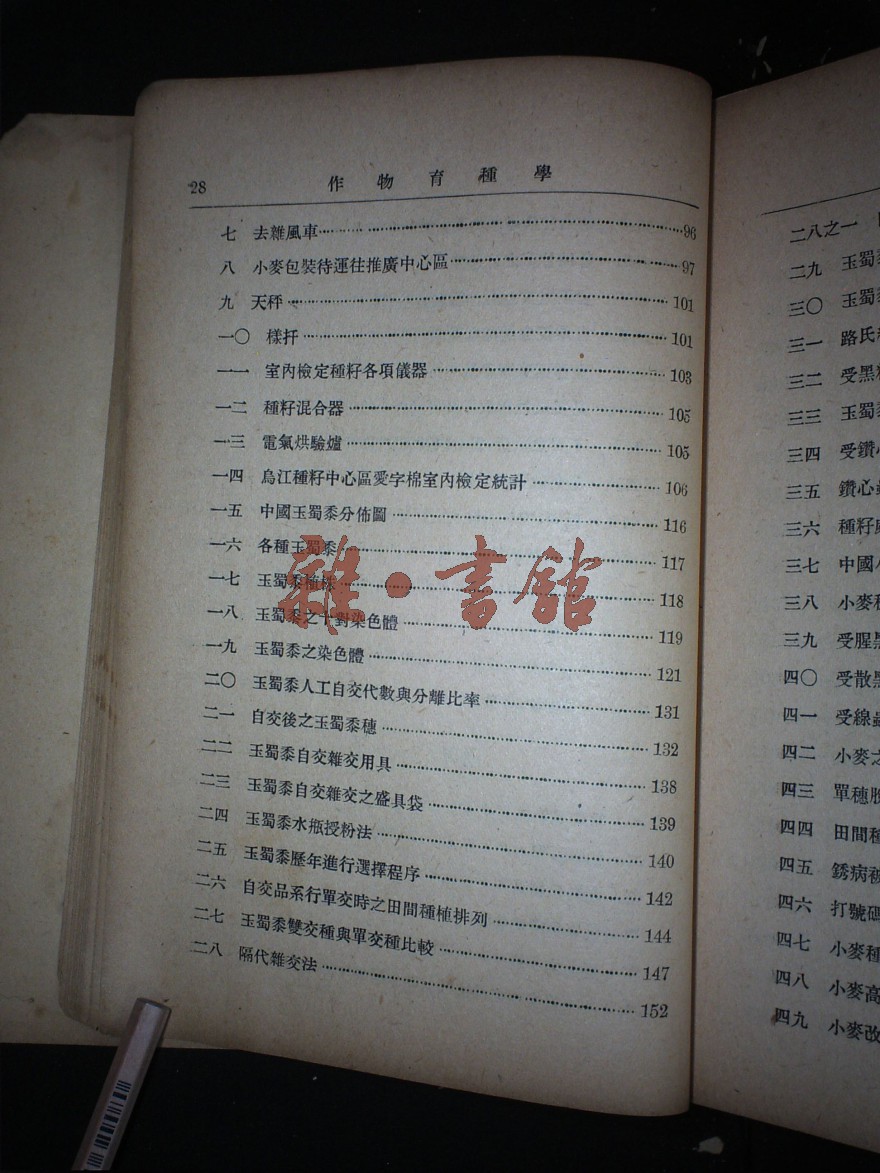 28 作物育種學
七 去雜風車 96
八 小麥包裝待運往推廣中心區 97
九 天秤 101
一〇 樣扦 101
一一 室內檢定種籽各項儀器 103
一二 種籽混合器 105
一三 電氣烘驗爐 105
一四 烏江種籽中心區愛字棉室內檢定統計 106
一五 中國玉蜀黍分佈圖 116
一六 各種玉蜀黍 117
一七 玉蜀黍植株 118
一八 玉蜀黍之十對染色體 119
一九 玉蜀黍之染色體 121
二〇 玉蜀黍人工自交代數與分離比率 131
二一 自交後之玉蜀黍穗 132
二二 玉蜀黍自交雜交用具 138
二三 玉蜀黍自交雜交之盛具袋 139
二四 玉蜀黍水瓶授粉法 140
二五 玉蜀黍歷年進行選擇程序 142
二六 自交品系行單交時之田間種植排列 144
二七 玉蜀黍雙交種與單交種比較 147
二八 隔代雜交法 152
雜·書館
二八之一
二九 玉蜀
三〇 玉蜀
三一 路氏
三二 受黑
三三 玉蜀
三四 受鑽
三五 鑽心
三六 種籽
三七 中國
三八 小麥
三九 受腥
四〇 受散
四一 受線
四二 小麥之
四三 單穗
四四 田間種
四五 銹病
四六 打號
四七 小麥種
四八 小麥高
四九 小麥改